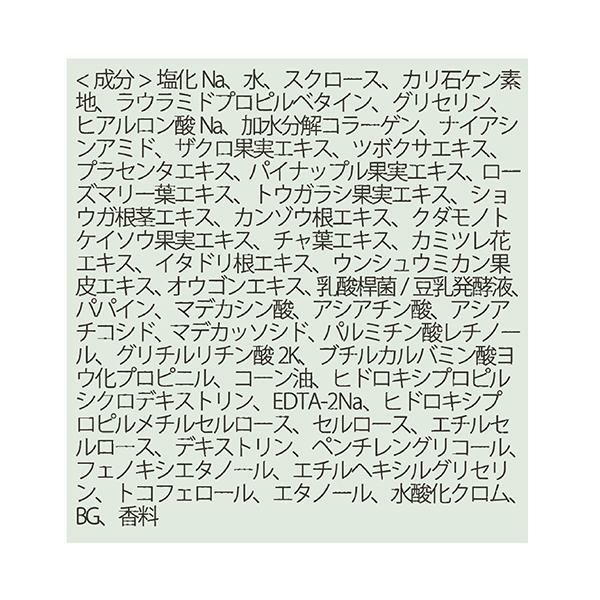 <成分>塩化Na、水、スクロース、カリ石ケン素
地、ラウラミドプロピルベタイン、グリセリン、
ヒアルロン酸Na、加水分解コラーゲン、ナイアシ
ンアミド、ザクロ果実エキス、ツボクサエキス、
プラセンタエキス、パイナップル果実エキス、ロー
ズマリー葉エキス、トウガラシ果実エキス、ショ
ウガ根茎エキス、カンゾウ根エキス、クダモノト
ケイソウ果実エキス、チャ葉エキス、カミツレ花
エキス、イタドリ根エキス、ウンシュウミカン果
皮エキス、オウゴンエキス、乳酸桿菌/豆乳発酵液、
パパイン、マデカシン酸、アシアチン酸、アシア
チコシド、マデカッソシド、パルミチン酸レチノー
ル、グリチルリチン酸2K、ブチルカルバミン酸ヨ
ウ化プロピニル、コーン油、ヒドロキシプロピル
シクロデキストリン、EDTA-2Na、ヒドロキシプ
ロピルメチルセルロース、セルロース、エチルセ
ルロース、デキストリン、ペンチレングリコール、
フェノキシエタノール、エチルヘキシルグリセリ
ン、トコフェロール、エタノール、水酸化クロム、
BG、香料